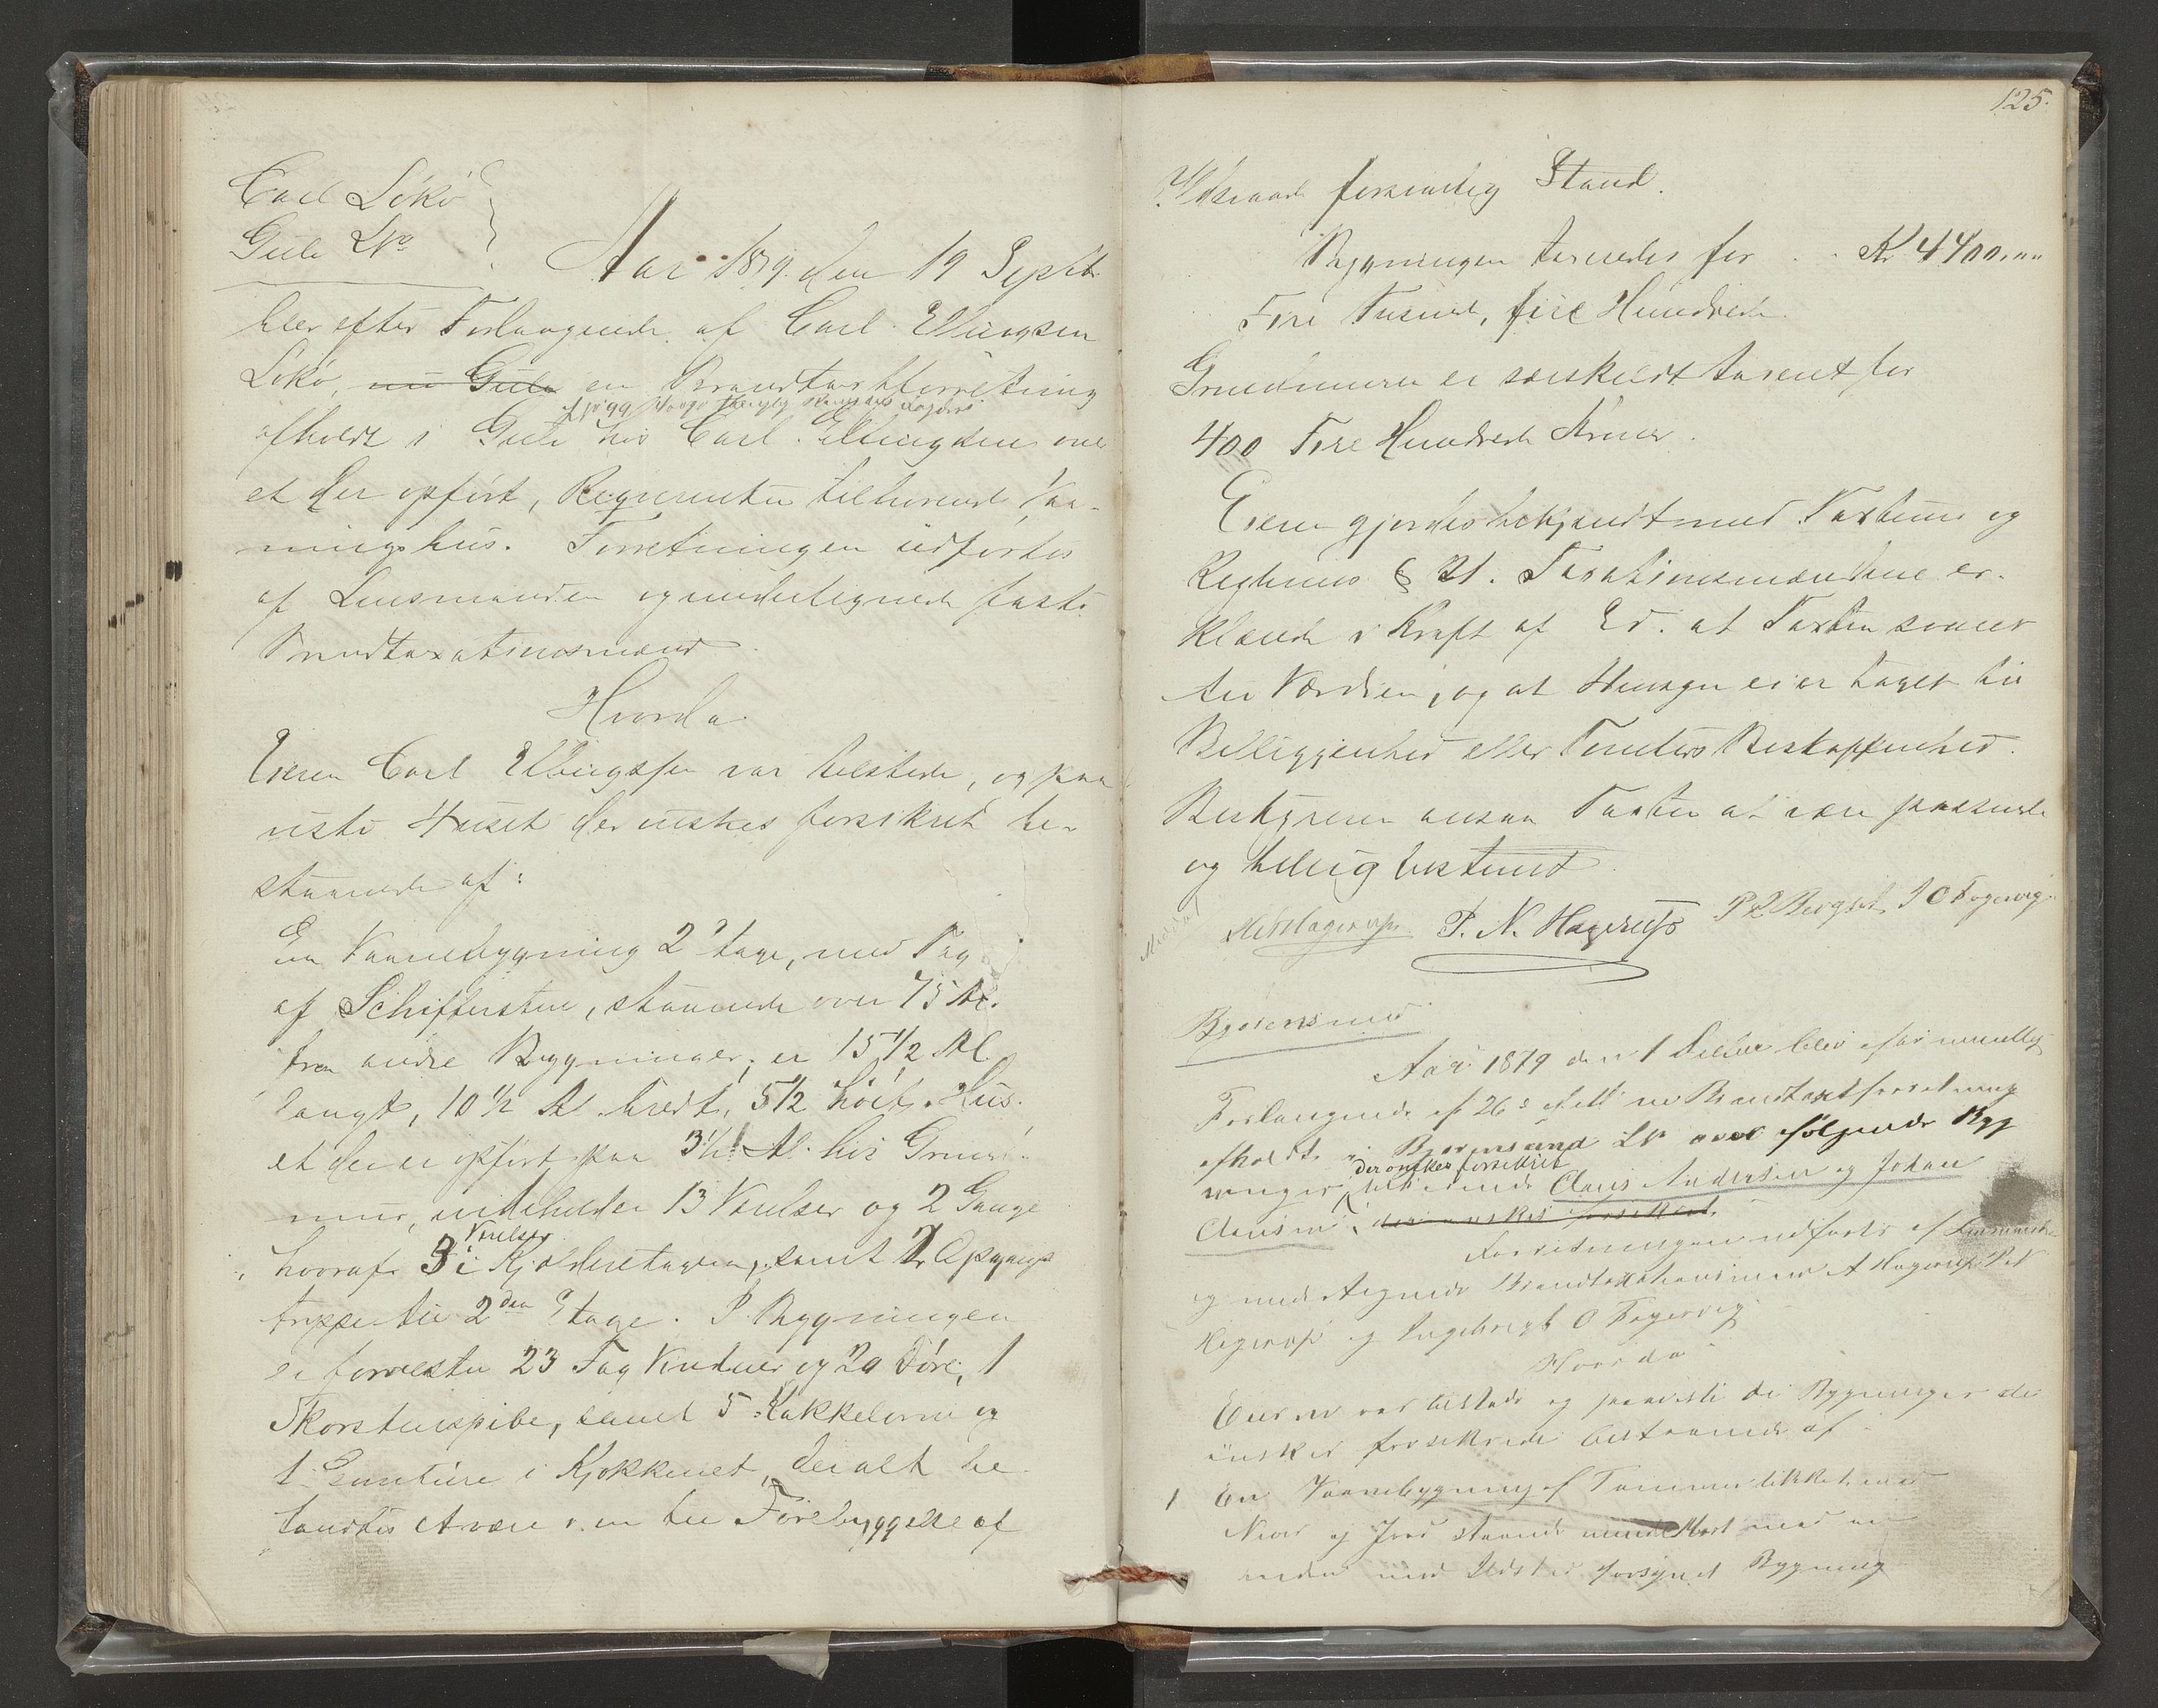 Carl Lökö
Gule LNo
Aar 1879. den 19 Septbr.
blev efter Forlangende af Carl Ellingsen
Lökö, nu Gule en Brandtaxtforretning
afholdt i Gule hos Carl Ellingsen over
et der opfört, Reqvirenten tilhörende Vaa-
ningshus. Forretningen udfortes
af Lensmanden og undertegnede faste
Brandtaxationsmænd.
Hvorda
Eieren Carl Ellingsen var tilstede, og paa
viste Huset der önskes forsikret be-
staaende af:
En Vaanebygning 2 Etage, med Tag
af Schiffersten, staaende over 75 Al.
fra andre Bygninger, er 15 1/2 Al.
langt, 10 1/2 Al bredt, 5 1/2 höit. Hus.
et der er opfört paa 3 1/2 Al. höi Grund-
mur, indeholder 13 Værelser og 2 Gange
Værelser
hvoraf 3 i Kjelderetagen, samt 2 Opgangs
trappe til 2den Etage. I Bygningen
er forresten 23 Fag Vinduer og 20 Döre, 1
Skorstenspibe, samt 5 Kakkelovne og
1 Comfüre i Kjökkenet, der alt be
fandtes at være i en til Forebyggelse af
125.
Ildsvaade forsvarlig Stand.
Bygningen taxeredes for . . Kr 4400,00
Fire Tusinde, fire Hundrede.
Grundmuren er særskildt taxeret for
400 Fire Hundrede Kroner.
Eieren gjordes bekjendt med Taxten og
Reglernes § 21. Taxationsmændene er-
klærede i Kraft af Ed. at Taxten svarer
til Værdien, og at Hensyn ei er taget til
Beliggenhed eller Tomtens Beskaffenhed.
Bestyreren ansaa Taxten at være passende
og billig bestemt.
P. N. Hagerup P L Bergset I O Fagervig
Bjørensund
Aar 1879 den 1 Octbr blev efter mundtlig
Forlangende af 26 d. M. en Brandtaxtforretning
afholdt i Bjørnsund LN over følgende Byg
der ønskes forsikret
ninger, tilhørende Claus Andersen og Johan
Clausen, der ønskes forsikret.
Forretningen udførtes af Lensmanden
og undertegnede Brandtaxationsmænd A Hagerup P N
Hagerup og Ingebrigt O Fagervig
Hvorda
Eieren var tilstede og paaviste de Bygninger der
önskes forsikrede bestaaende af:
1 En Vaanebygning af Tømmer tækket med
Næver og Jord staaende umiddelbart med en
anden med Ildsted forsynet Bygning